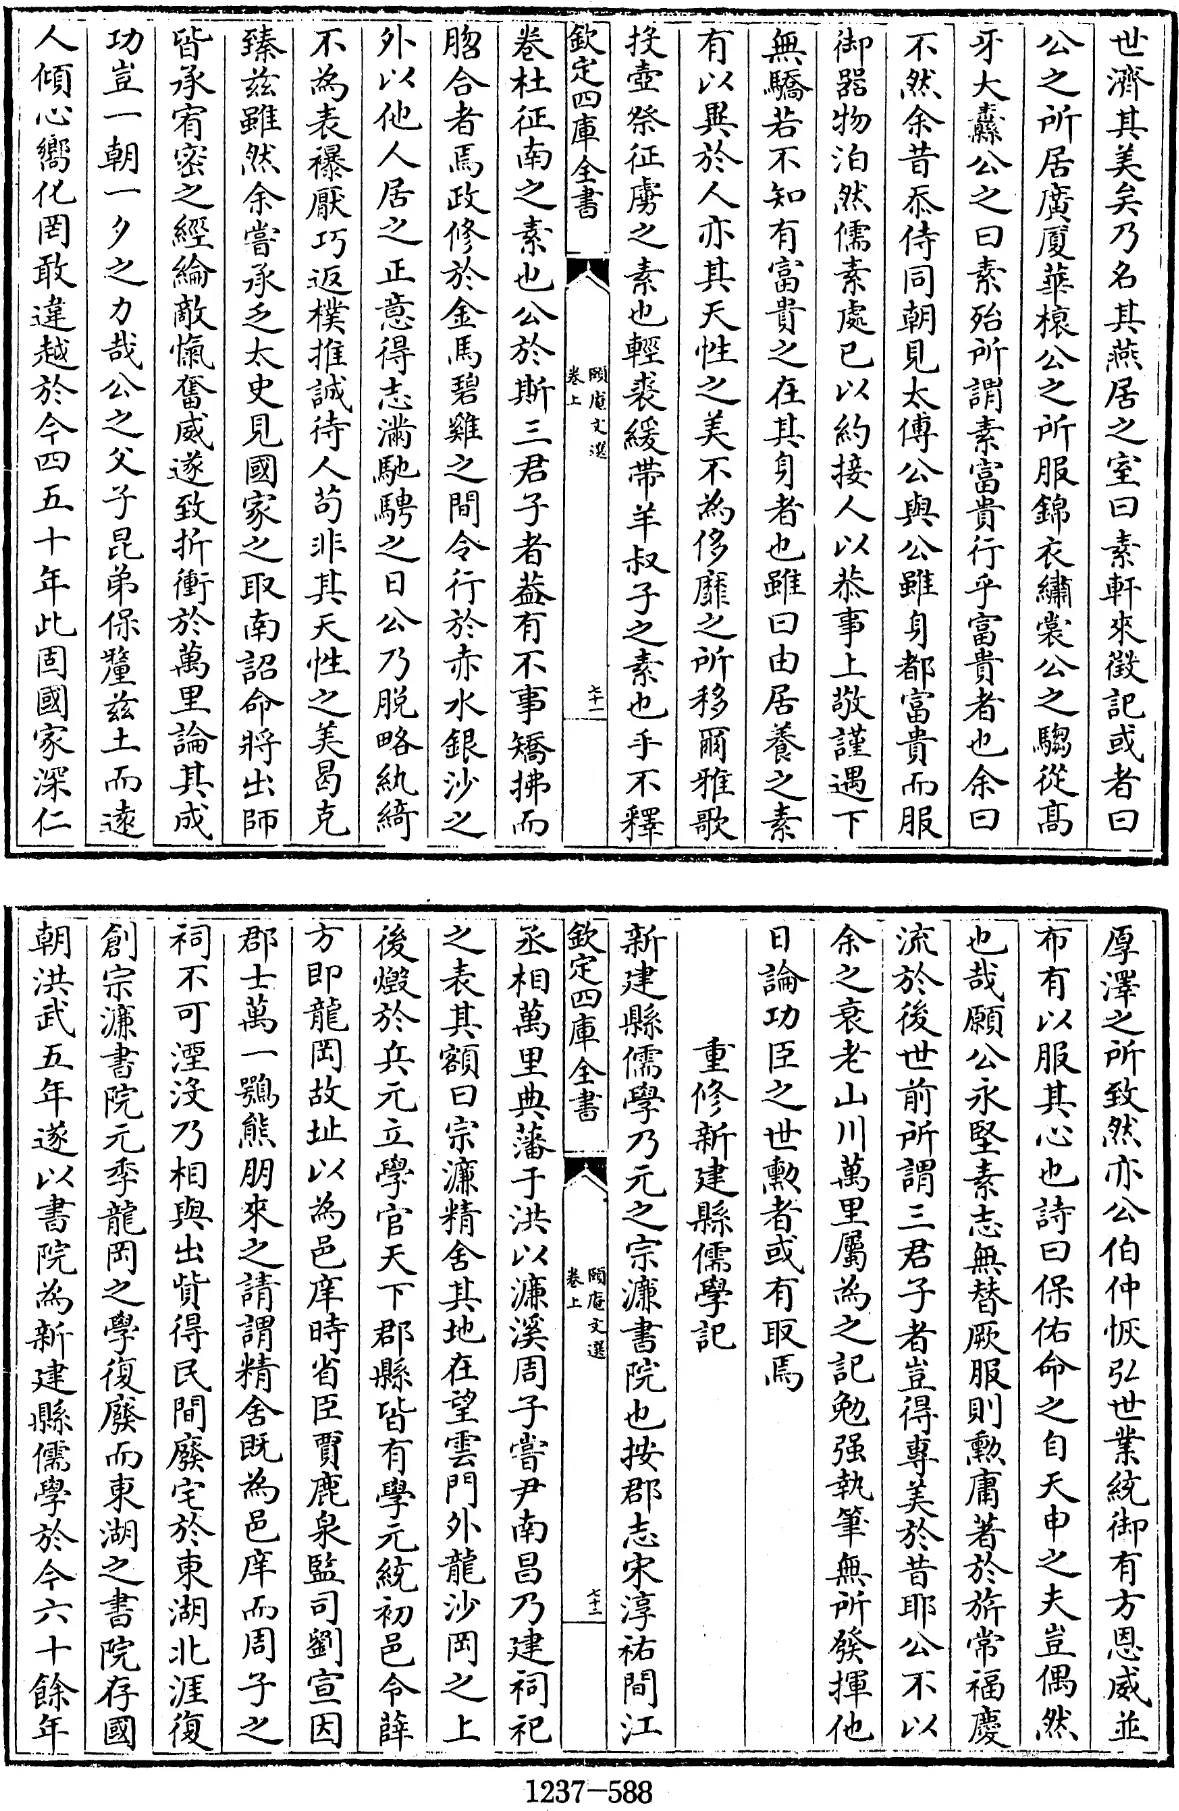 世濟其美矣乃名其燕居之室曰素軒來徵記或者曰
公之所居廣廈華榱公之所服錦衣繡裳公之騶從高
牙大纛公之曰素殆所謂素富貴行乎富貴者也余曰
不然余昔忝侍同朝見太傅公與公雖身都富貴而服
御器物泊然儒素處已以約接人以恭事上敬謹遇下
無驕若不知有富貴之在其身者也雖曰由居養之素
有以異於人亦其天性之美不為侈靡之所移爾雅歌
投壺祭征虜之素也輕裘緩帶羊叔子之素也手不釋
欽定四庫全書
頤庵文選
卷上
七十一
卷杜征南之素也公於斯三君子者葢有不事矯拂而
脗合者焉政修於金馬碧雞之間令行於赤水銀沙之
外以他人居之正意得志滿馳騁之日公乃脱略紈綺
不為表襮厭巧返樸推誠待人苟非其天性之美曷克
臻兹雖然余嘗承乏太史見國家之取南詔命將出師
皆承宥密之經綸敵愾奮威遂致折衝於萬里論其成
功豈一朝一夕之力哉公之父子昆弟保釐兹土而逺
人傾心嚮化罔敢違越於今四五十年此固國家深仁
厚澤之所致然亦公伯仲恢弘世業統御有方恩威並
布有以服其心也詩曰保佑命之自天申之夫豈偶然
也哉願公永堅素志無替厥服則勲庸著於旂常福慶
流於後世前所謂三君子者豈得專美於昔耶公不以
余之衰老山川萬里屬為之記勉强執筆無所發揮他
日論功臣之世勲者或有取焉
重修新建縣儒學記
新建縣儒學乃元之宗濂書院也按郡志宋淳祐間江
欽定四庫全書
頤庵文選
卷上
七十二
丞相萬里典藩于洪以濂溪周子嘗尹南昌乃建祠祀
之表其額曰宗濂精舍其地在望雲門外龍沙岡之上
後燬於兵元立學官天下郡縣皆有學元統初邑令薛
方即龍岡故址以為邑庠時省臣賈鹿泉監司劉宣因
郡士萬一鶚熊朋來之請謂精舍既為邑庠而周子之
祠不可湮没乃相與出貲得民間廢宅於東湖北涯復
創宗濂書院元季龍岡之學復廢而東湖之書院存國
朝洪武五年遂以書院為新建縣儒學於今六十餘年
1237-588